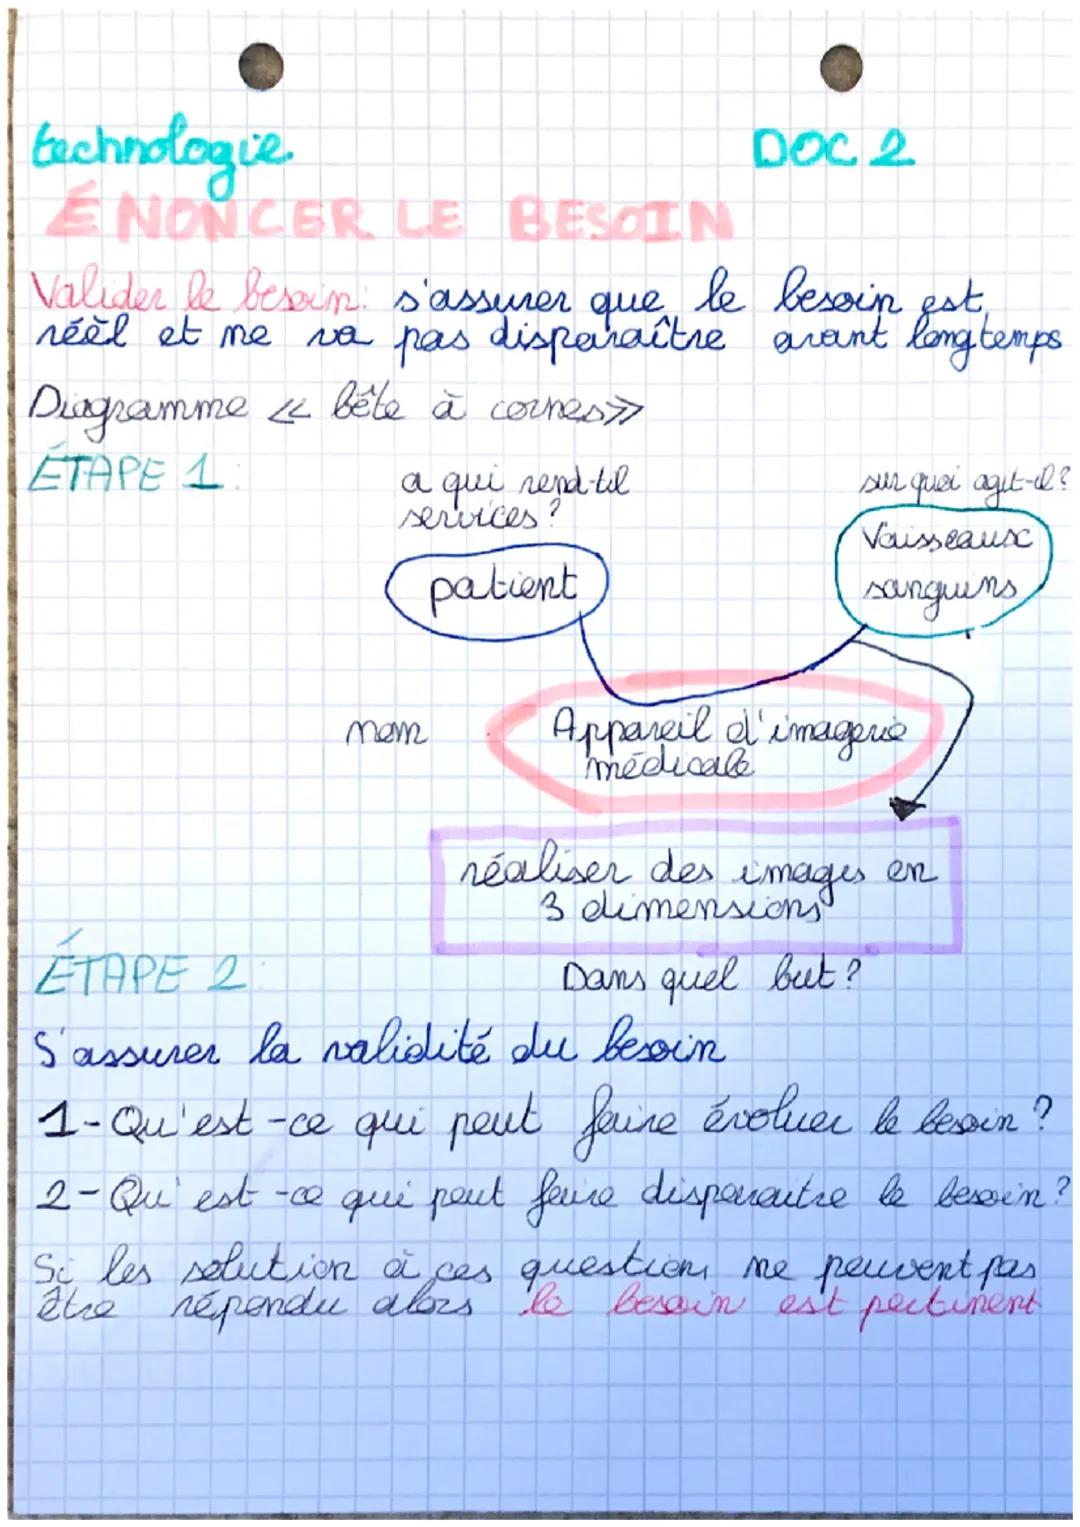 technologie. DOC 2
ÉNONCER LE BESOIN
Valider le besoin: s'assurer que le besoin est
réèl et ne va pas disparaître avant longtemps
Diagramme << bête à cornes>>
ÉTAPE 1:
a qui rend-til
services?
sur quoi agit-il?
Vaisseaux
sanguins
patient
nom
Appareil d'imagerie
médicale
réaliser des images en
3 dimensions
ÉTAPE 2:
Dans quel but?
S'assurer la validité du besoin
1-Qu'est-ce qui peut faire évoluer le besoin?
2-Qu'est-ce qui peut faire disparaitre le besoin?
Si les solution à ces questions ne peuvent pas
être répondu alors le besoin est pertinent